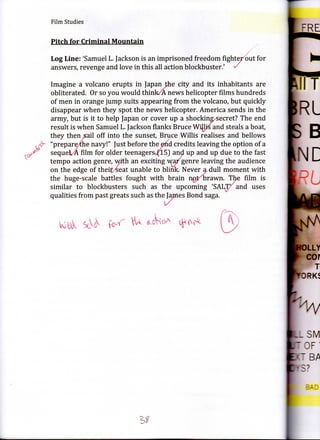 Film Studies
Pitch for Criminal Mountain
Log Line: 'Samuel L. Jackson is an imprisoned freedom fighter out for
answers, revenge and love in this all action blockbuster.'
Imagine a volcano erupts in Japan the city and its inhabitants are
obliterated. Or so you think. A news helicopter films hundreds
of men in orange jump suits appearing from the volcano, but quickly
disappear when they spot the news helicopter. America sends in the
army, but is it to help Japan or cover up a shocking secret? The end
result is when Samuel L. Jackson flanks Bruce Willis and steals a boat,
they then sail off into the sunset, Bruce Willis realises and bellows
"prepare the navy!" Just before the end credits leaving the option of a
sequel. A film for older teenagers (15) and up and up due to the fast
tempo action genre, with an exciting war genre leaving the audience
on the edge of their seat unable to blink. Never a dull moment with
the huge-scale battles fought with brain not brawn. The film is
similar to blockbusters such as the upcoming 'SALT' and uses
qualities from past greats such as the James Bond saga.
Well sold for the action genre
A
38
FRE
All T
BRU
S B
AND
BRU
HOLLY
CON
T
YORKS
LL SM
UT OF
EXT BA
OYS?
BAD